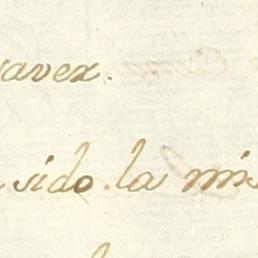 avez.
sido. la mis